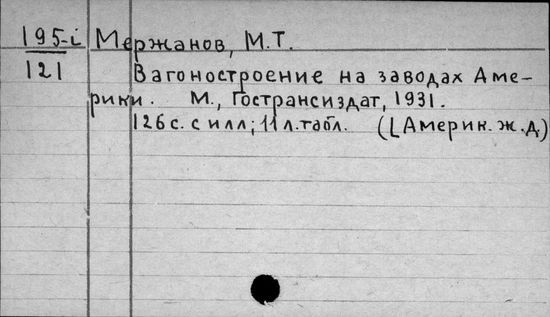 195-i Мержанов, М.Т.
121 Вагоностроение на заводах Аме-
рики. М., Гострансиздат, 1931.
126 с. с илл; 11 л. табл. ([Америк. ж.д.)